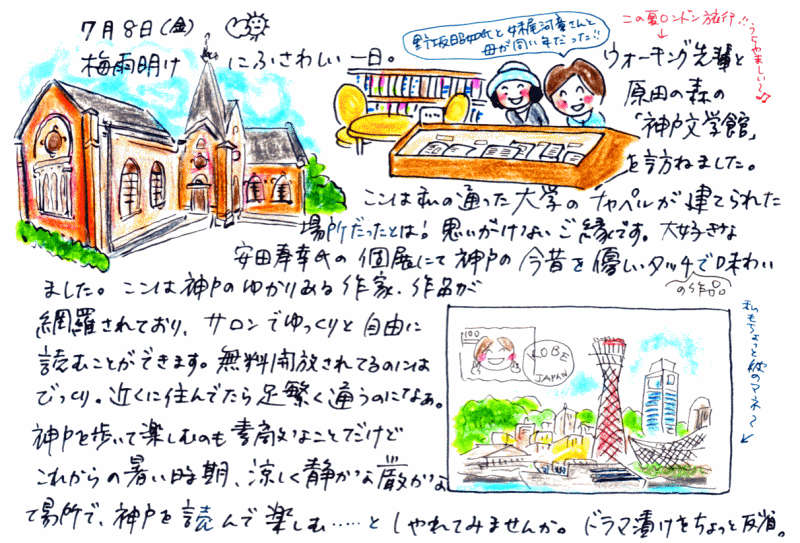 7月8日(金)
梅雨明けにふさわしい一日。
野坂昭如氏と妹尾河童さんと
母が同い年だった!!
この夏ロンドン旅行!!
うらやましい〜♪
ウォーキング先輩と
原田の森の
「神戸文学館」
を訪ねました。
ここは私の通った大学のチャペルが建てられた
場所だったとは!思いがけないご縁です。大好きな
安田寿幸氏の個展にて神戸の今昔を優しいタッチで味わい
の作品
ました。ここは神戸のゆかりある作家、作品が
網羅されており、サロンでゆっくりと自由に
読むことができます。無料開放されてるのには
びっくり。近くに住んでたら足繁く通うのになぁ。
神戸を歩いて楽しむのも素敵なことだけど
これからの暑い時期、涼しく静かな厳かな
て場所で、神戸を読んで楽しむ……と しゃれてみませんか。ドラマ漬けをちょっと反省。
100
KOBE
JAPAN
私もちょっと彼のマネ〜